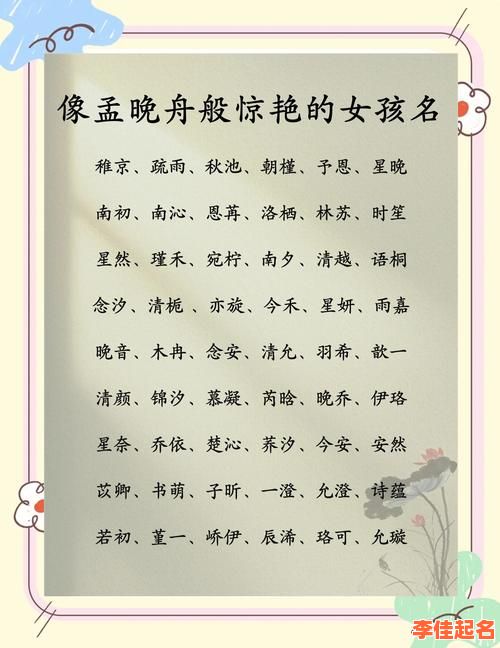 像孟晚舟般惊艳的女孩名
稚京、疏雨、秋池、朝槿、予恩、星晚
南初、南沁、恩苒、洛栖、林苏、时笙
星然、瑾禾、宛柠、南夕、清越、语桐
念汐、清栀、亦旋、今禾、星妍、雨嘉
晚音、木冉、念安、清允、羽希、歆一
清颜、锦汐、慕凝、芮晗、晚乔、伊珞
星奈、乔依、楚沁、荞汐、今安、安然
苡卿、书萌、子昕、一澄、允澄、诗蕴
若初、堇一、峤伊、辰浠、珞可、允璇
李佳起名